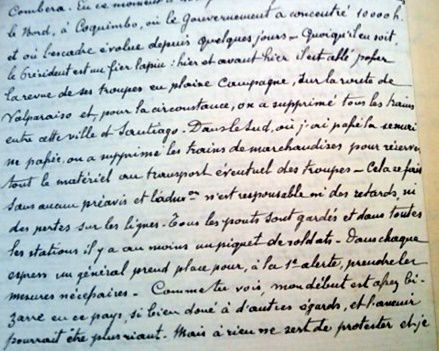 Combera. En ce moment
le Nord, à Coquimbo, où le Gouvernement a concentré 10000 h.
et où l'escadre évolue depuis quelques jours – Quoiqu'il en soit,
le Président est un fier lapin : hier et avant-hier il est allé passer
la revue de ses troupes en pleine campagne, sur la route de
Valparaiso et, pour la circonstance, on a supprimé tous les trains
entre cette ville et Santiago. – Dans le Sud, où j'ai passé la semai
ne passée, on a supprimé les trains de marchandises pour réserver
tout le matériel au transport éventuel des troupes – Cela se fait
sans aucun préavis et l'adm on n'est responsable ni des retards, ni
des pertes sur les lignes – Tous les ponts sont gardés et dans toutes
les stations il y a au moins un piquet de soldats – Dans chaque
express un général prend place pour, à la 1e alerte, prendre les
mesures nécessaires – Comme tu vois, mon début est assez bi-
zarre en ce pays, si bien doué à d'autres égards, et l'avenir
pourrait être plus riant. Mais à rien ne sert de protester et je